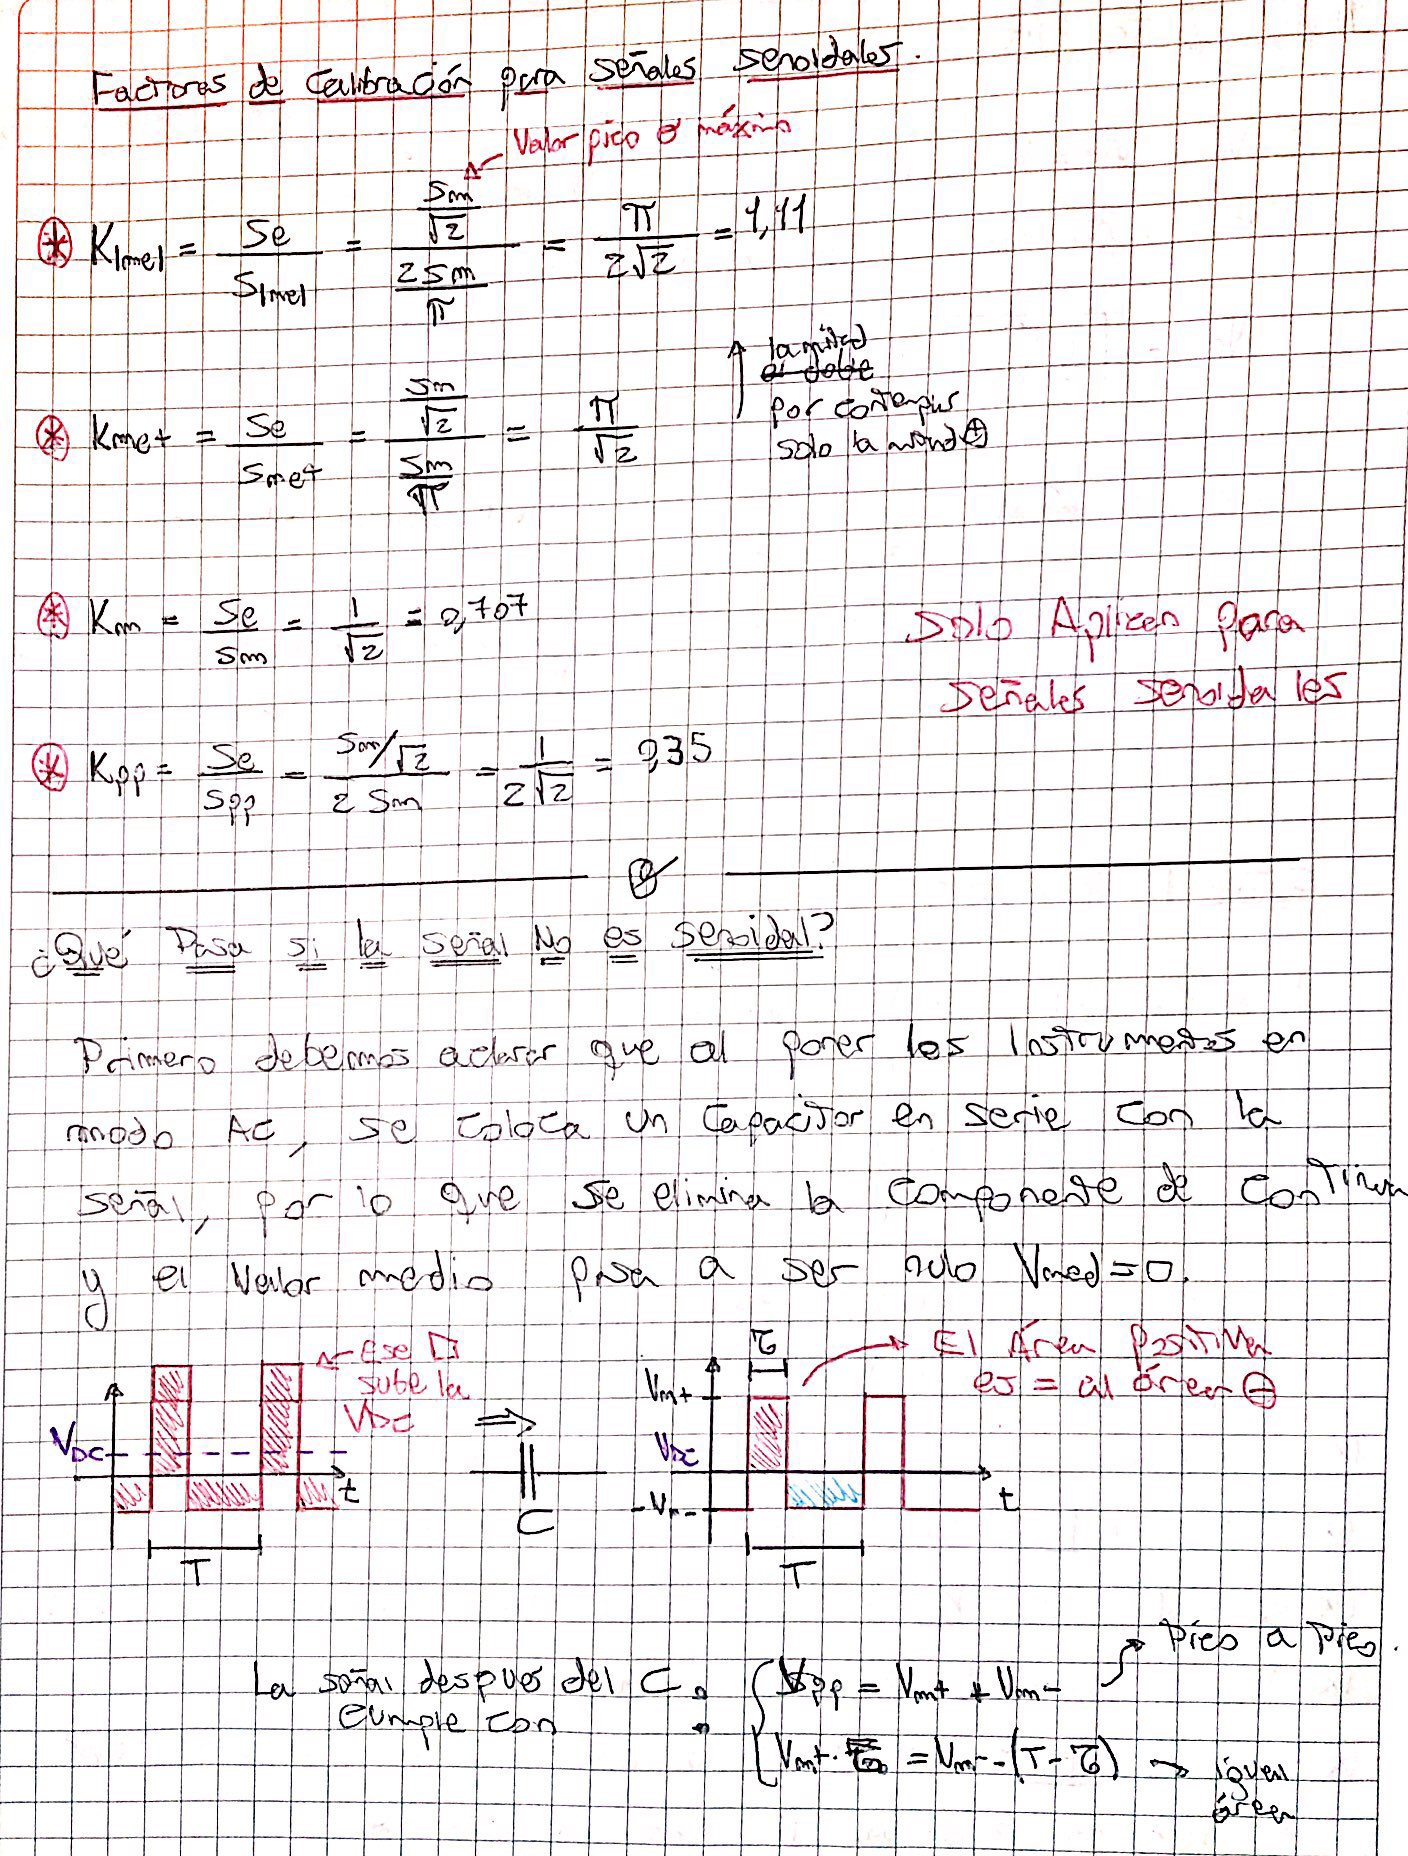 Factores de Calibración para señales senoidales.
Valor pico o máximo
K|me| = Se / S|me| = (Sm/√2) / (2Sm/π) = π / 2√2 = 1,11
la mitad
el doble
por contemplar
solo la mitad ⊕
Kme+ = Se / Sme+ = (Sm/√2) / (Sm/π) = π / √2
Km = Se / Sm = 1 / √2 = 0,707
Solo Aplican para
señales senoidales
Kpp = Se / Spp = (Sm/√2) / 2 Sm = 1 / 2√2 = 0,35
¿Qué Pasa si la señal No es senoidal?
Primero debemos aclarar que al poner los Instrumentos en
modo AC, se coloca un Capacitor en serie con la
señal, por lo que se elimina la componente de continua
y el Valor medio pasa a ser nulo Vmed=0.
Ese □
sube la
VDC
VDC
t
T
⇒
C
τ
El Área Positiva
es = al área ⊖
Vm+
VDC
-Vm-
t
T
La señal despues del C
cumple con :
Vpp = Vm+ + Vm-
Pico a Pico.
Vm+ · τ = Vm- · (T - τ) → igual
área